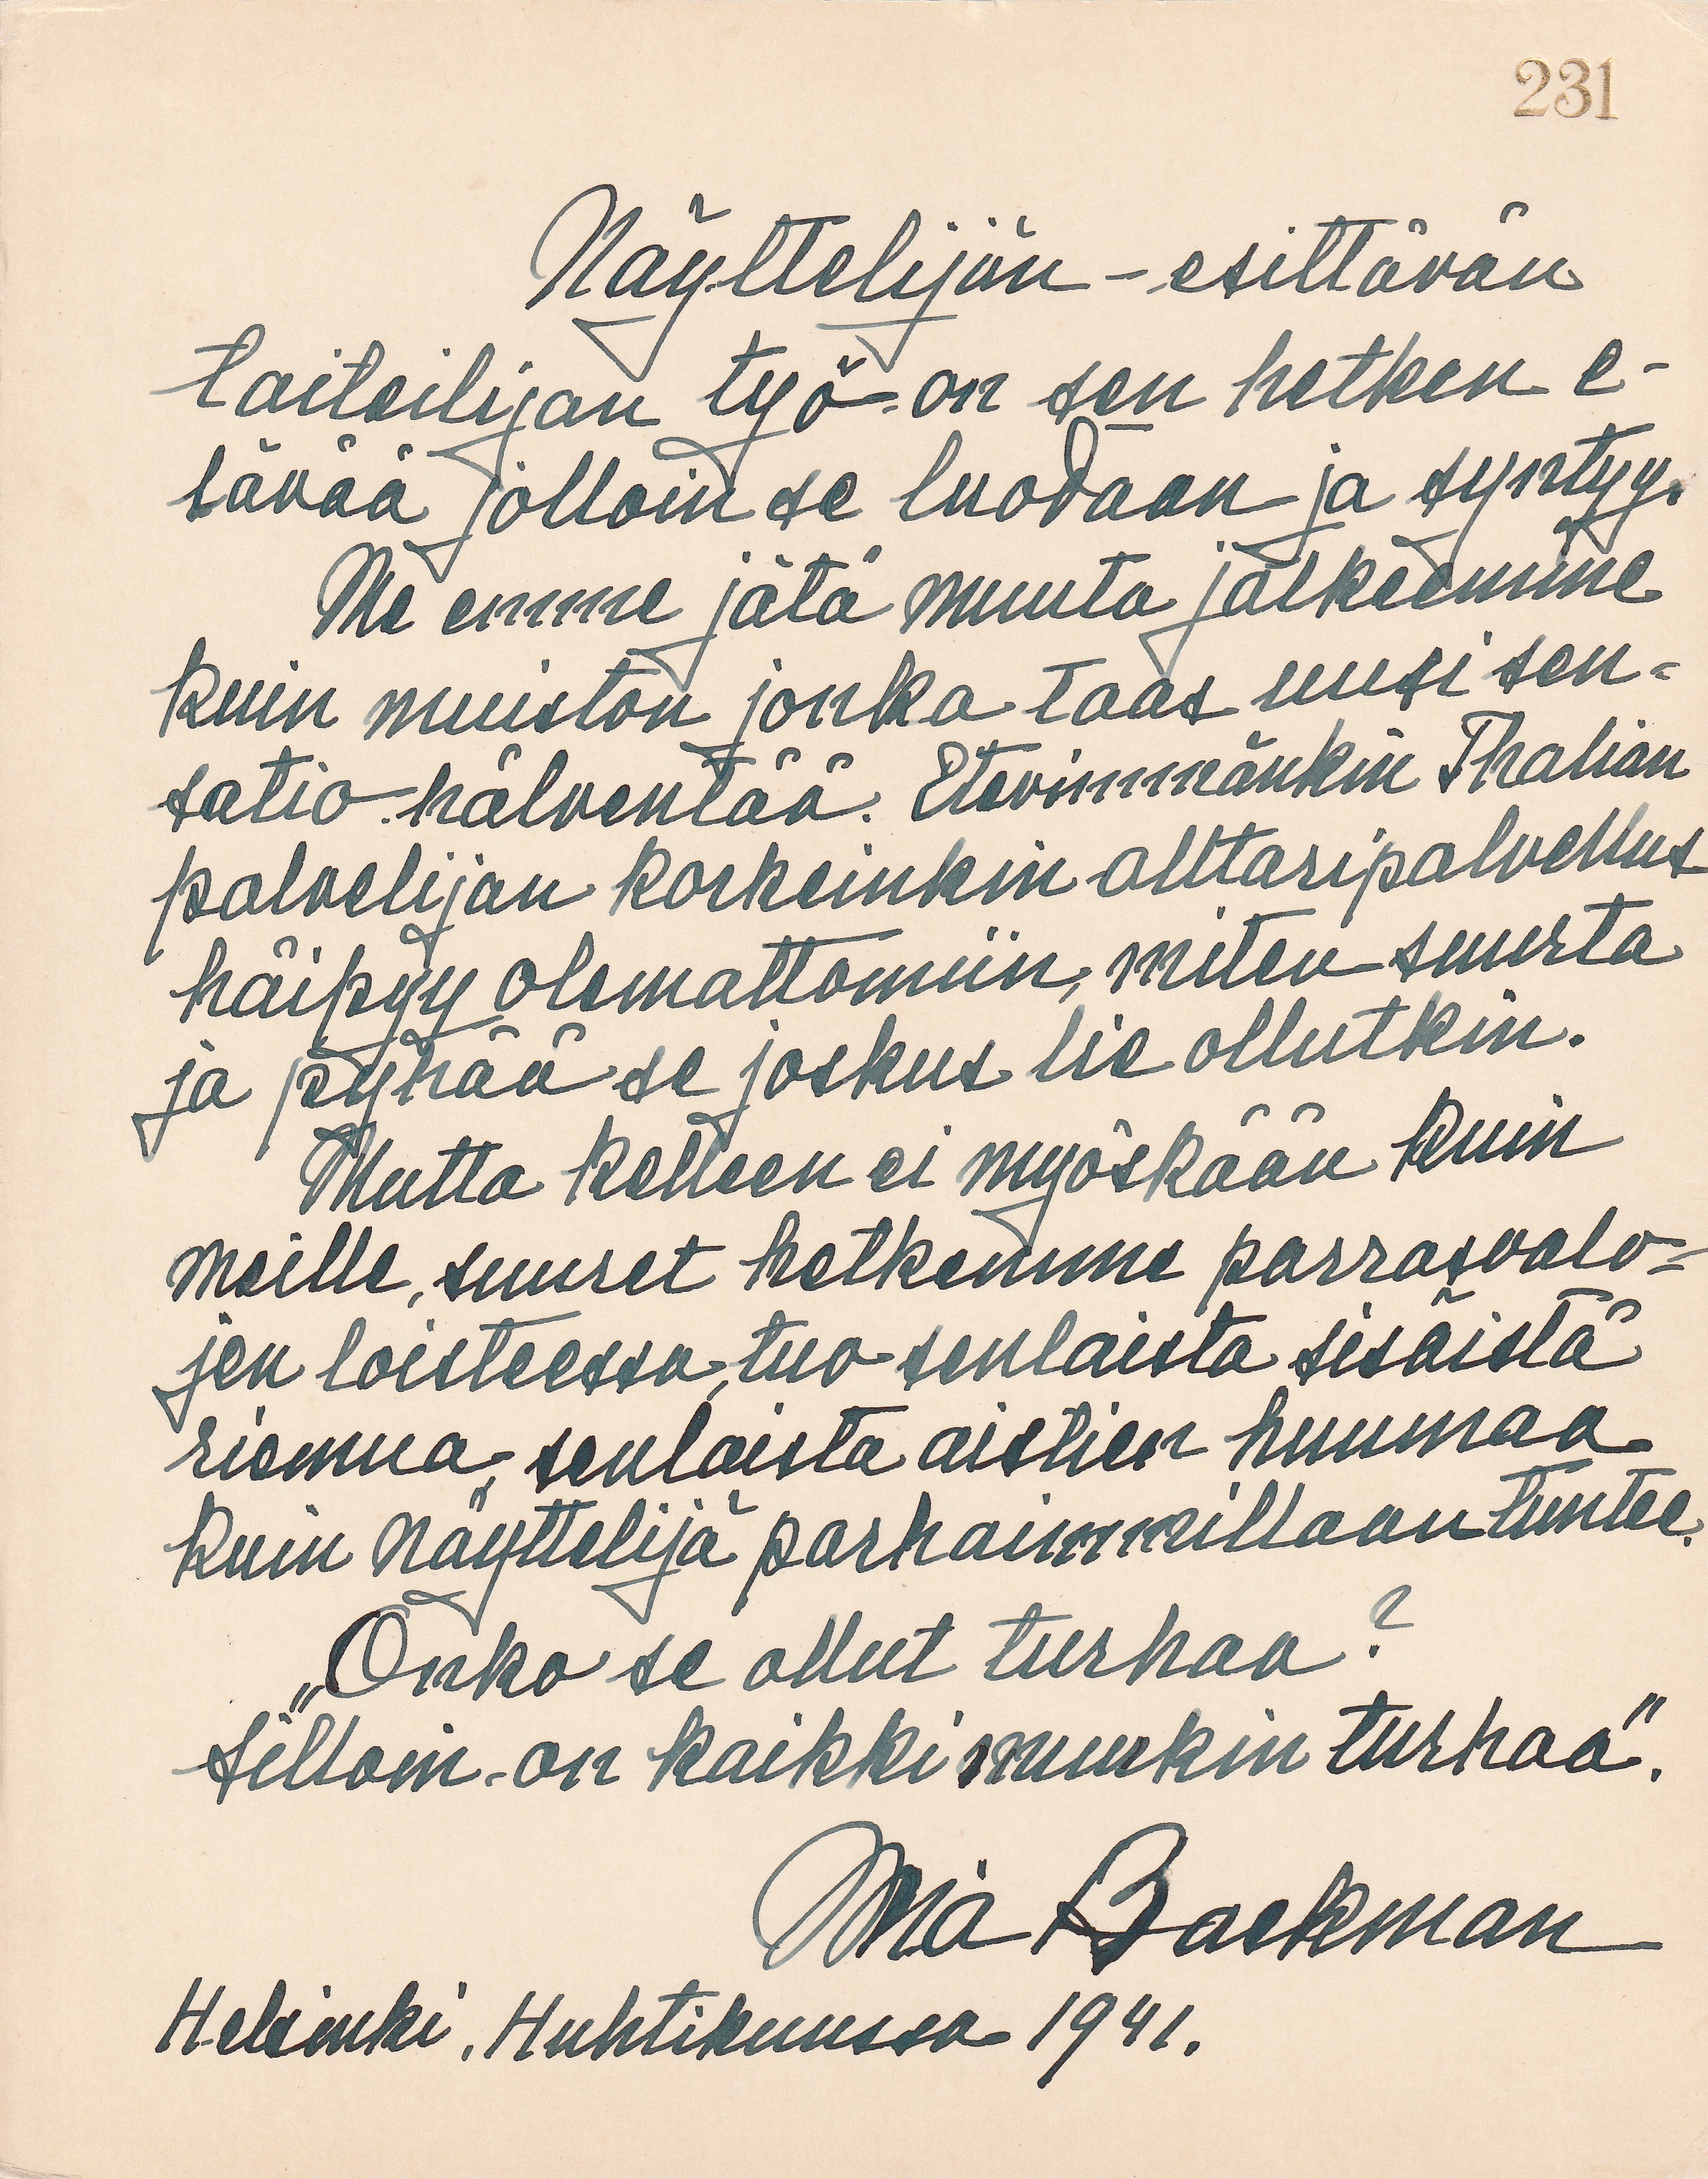 231
Näyttelijän - esittävän
taiteilijan työ on sen hetken e-
lävää jolloin se luodaan ja syntyy.
Me emme jätä muuta jälkeemme
kuin muiston jonka taas uusi sen=
satio hälventää. Etevimmänkin Thalian
palvelijan korkeinkin alttaripalvellus
häipyy olemattomiin, miten suurta
ja pyhää se joskus lie ollutkin.
Mutta kelleen ei myöskään kuin
meille, suuret hetkemme parrasvalo=
jen loisteessa, tuo senlaista sisäistä
riemua, senlaista aistien huumaa
kuin näyttelijä parhaimmillaan tuntee.
„Onko se ollut turhaa?
Silloin on kaikki muukin turhaa".
Mia Backman
Helsinki. Huhtikuussa 1941.